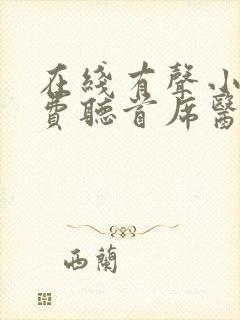 在綫有聲小
費聽首席醫
西蘭